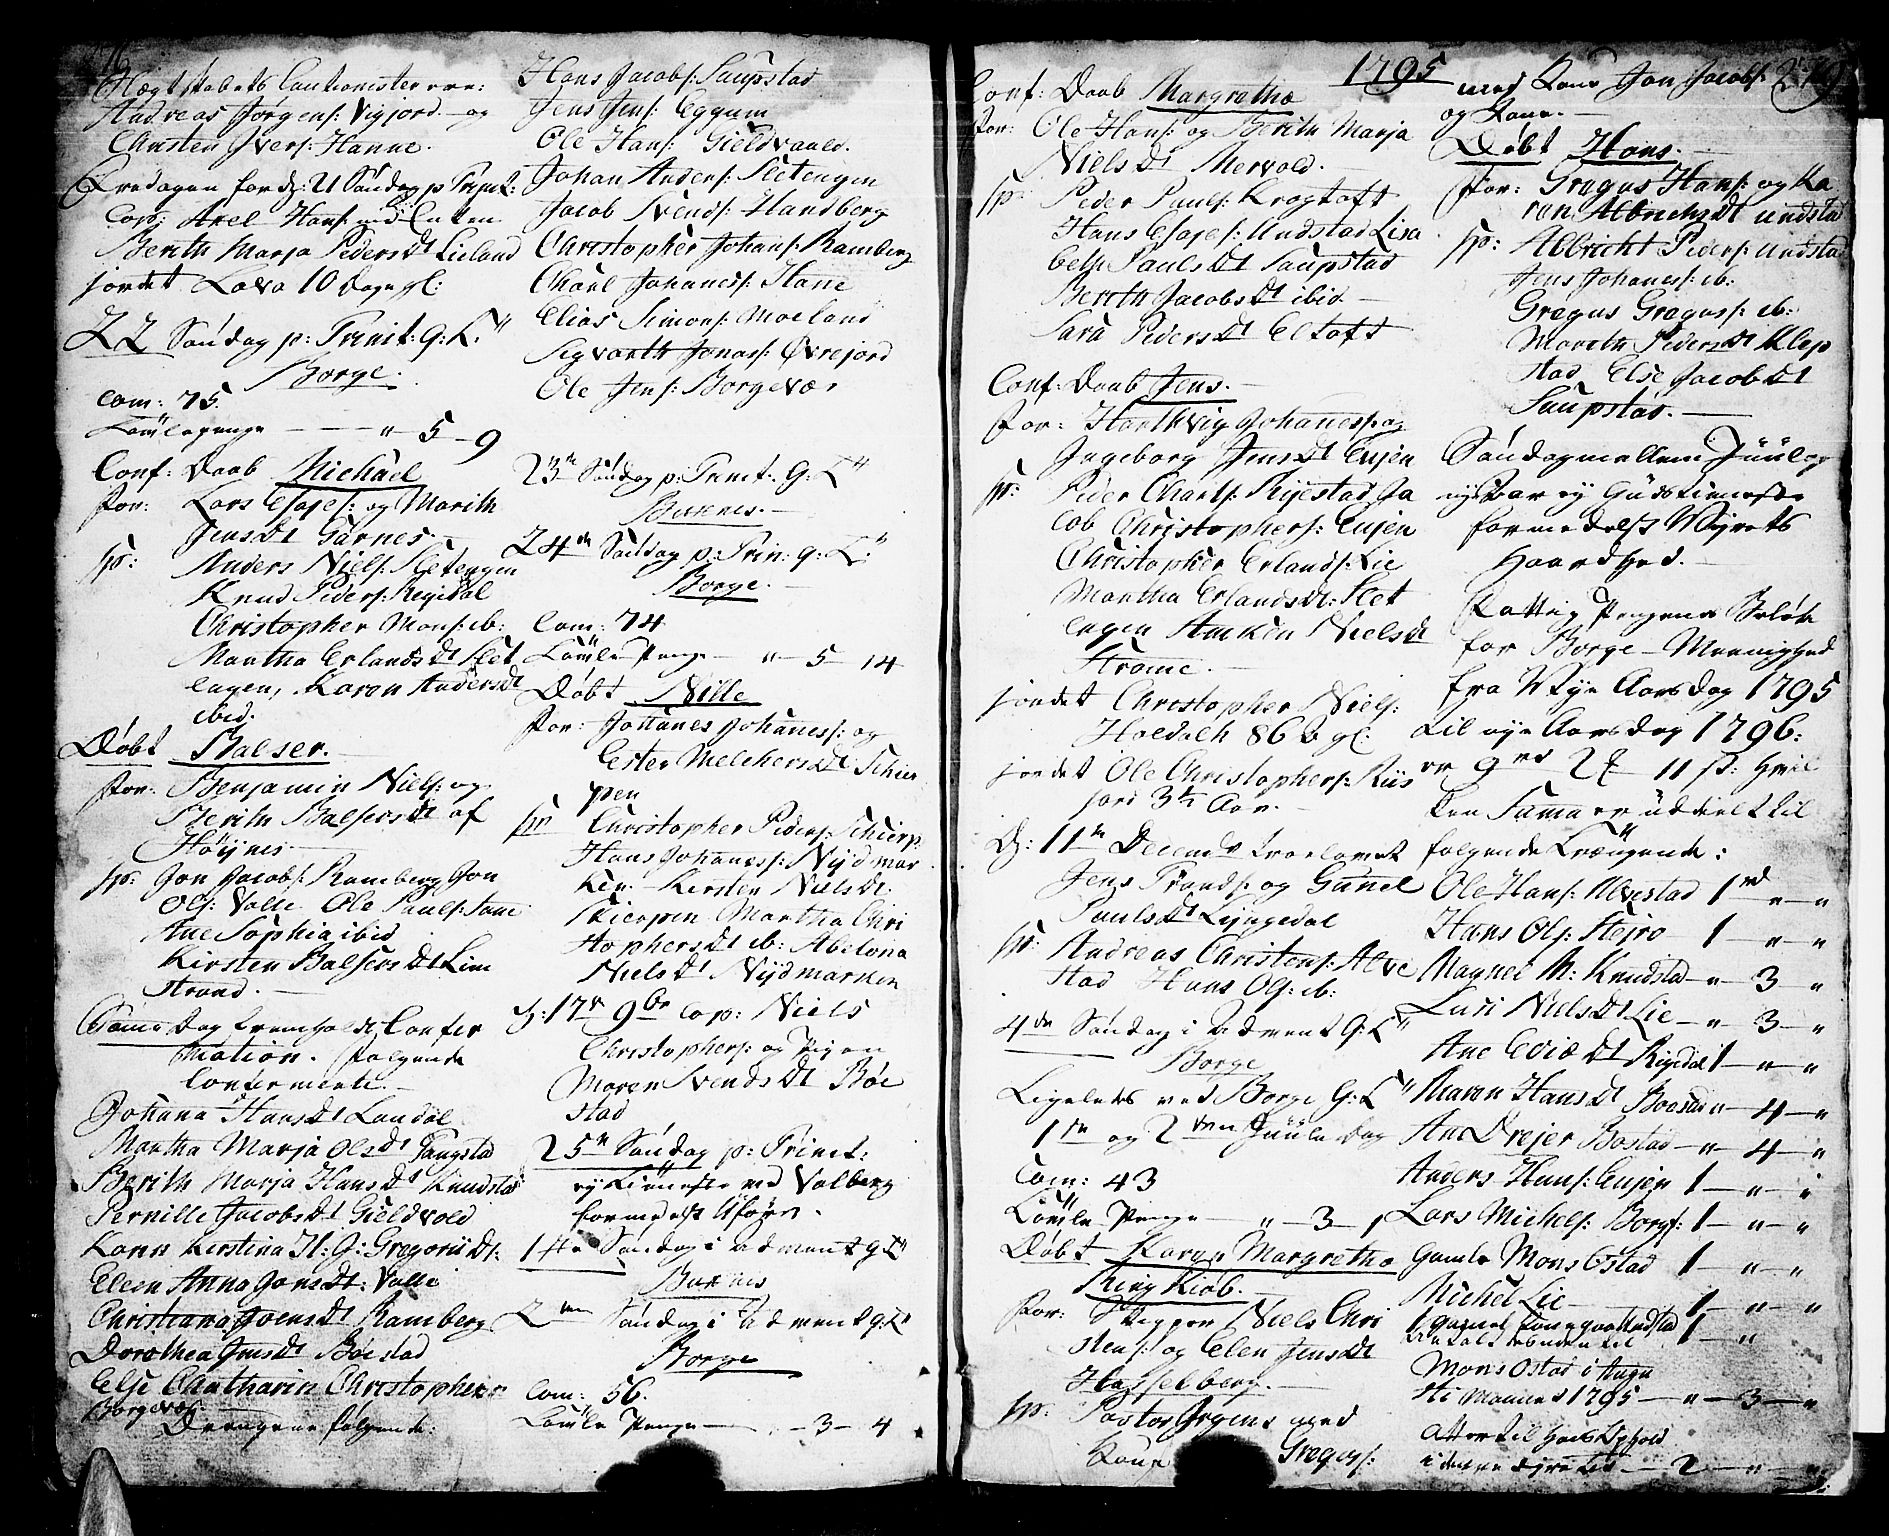 Hægtskabets Cautionister var:
Andreas Jørgens: Vigjord og
Christen Ivers: Hanne.
Løverdagen for d: 21 Søndag p Trinit:
Cop: Axel Hans: med Enken
Berith Marja Peders Dt Lieland
jordet Lava 10 Dage gl:
22 Søndag p: Trinit: G: T.
Borge.
Com: 75.
Tavlepenge — — — " 5 — 9
Conf: Daab Michael
For: Lars Esajes: og Marith
Jens Dt Garnes
Sp: Anders Niels: Sletengen
Knud Peders: Rejsdal
Christopher Mons: ib:
Martha Erlands Dt Slet
engen, Karen Anders Dt
ibid.
Døbt Balser.
For: Benjamin Niels: og
Berith Balsers Dt af
Høynes
Sp: Jon Jacobs: Ramberg Jon
Ols: Valle Ole Pauls:
Ane Sophia ibid
Kirsten Balsers Dt Lim
strand.
Samme Dag fremholdt Confir
mation. Følgende
Confirmerte.
Johana Hans Dt Landøl
Martha Marja Ols Dt Tangstad
Berith Marja Hans Dt Knudstad
Pernille Jacobs Dt Gieldvold
Karen Kirstina H: G: Gregorii Dt:
Elen Anna Jons Dt: Valle
Christiana Joens Dt Ramberg
Dorothea Jens Dt Bøestad
Else Chatharin Christophers
Borgevær.
Drengene følgende:
Hans Jacobs: Saupstad
Jens Jens: Eggum
Ole Hans: Gieldvold.
Johan Anders: Sletengen
Jacob Svends: Handberg
Christopher Johans: Ramberg
Charl Johanes: Hane
Elias Simons: Moeland
Sigvarth Jonas: Øvrejord
Ole Jens: Borgevær
23de Søndag p: Trinit: G: T
Buxnes.
24de Søndag p: Trin: G: T.
Borge.
Com: 74
Tavle Penge — " — 5 — 14
Døbt Nille
For: Johanes Johanes: og
Ester Melchers Dt Schier
pen
Sp: Christopher Peders: Schierp
Hans Johanes: Nydmar
ken Kirsten Niels Dt.
Skierpen Martha Chri
stophers Dt ib: Abelona
Niels Dt Nydmarken
D: 17de 9br Cop: Niels
Christophers: og Pigen
Maren Svends Dt Bøe
stad
25de Søndag p: Trinit:
ej Tieneste ved Valberg
formedelst Uføre.
1te Søndag i Advent G: T
Buxnes
2den Søndag i Advent G: T
Borge
Com: 56.
Tavle Penge — — 3 — 4
1795
279
Conf: Daab Margretha
For: Ole Hans: og Berith Marja
Niels Dt Mervold.
Sp: Peder Pauls: Krogtoft
Hans Esajes: Undstad Lisa
beth Pauls Dt Saupstad
Berith Jacobs Dt ibid. —
Sara Peders Dt Eltoft
Conf: Daab Jens.
For: Harthvig Johanes: og
Ingeborg Jens Dt Eujen
Sp: Peder Charls: Rystad Ja
cob Christophers: Eujen
Christopher Erlands: Lie
Martha Erlands Dt: Slet
engen Anken Niels Dt
Strøme.
jordet Christopher Niels:
Holdalh 86 gl:
jordet Ole Christophers: Riis
jord 3½ Aar.
D: 11te Decemb trolovet
Jens Trands: og Gunel
Pauls Dt Lyngedal
Sp: Andreas Christens: Alve
stad Hans Ols: ib:
4de Søndag i Advent G: T
Borge
Ligeledes ved Borge G: T
1te og 2den Juule Dag
Com: 43
Tavle Penge — " — 3 —
Døbt Karen Margretha
Ring Kiøb.
For: Skipper Niels Chri
stens: og Elen Jens Dt
Hasselberg.
Sp: Pastor Irgens med
Kone Gregers:
med Kone Jon Jacobs:
og Kone. —
Døbt Hans.
For: Gregus Hans: og Ka
ren Albrichs Dt Undstad
Sp: Albricht Peders: Undstad
Jens Johanes: ib:
Gregus Greguss: ib:
Mareth Peders Dt Klep
stad Else Jacobs Dt
Saupstad. —
Søndag mellem Juul og
nyt Aar ej Gudstieneste
formedelst Vejrets
Haardhed. —
Fattig Pengene Beløb
for Borge Meenighed
fra Nye Aarsdag 1795
til nye Aarsdag 1796:
er 9 rd 2 ₰ 11 s: hvil
ken Suma er uddelt til
følgende Trængende:
Ole Hans: Alvestad 1 rd " — "
Hans Ols: Steiro 1 — " — "
Magnel M: Knudstad — " — 3 — "
Luri Niels Dt Lie — " — 3 — "
Ane Evia Dt Rysdal 1 — " — "
Maren Hans Dt Boestad " — 4 — "
Ane Drejer Bostad — " — 4 — "
Anders Hans: Eujen 1 — " — "
Lars Michels: Borg: 1 — " — "
Gamle Mons Ostad 1 — " — "
Michel Lie — 1 — " — "
Undstad 1 — "
betalt til
Mons Ostad i Augu
sti Maaned 1795 — " — 3 — "
Atter til hans Ophold
i denne — 2 — " — "